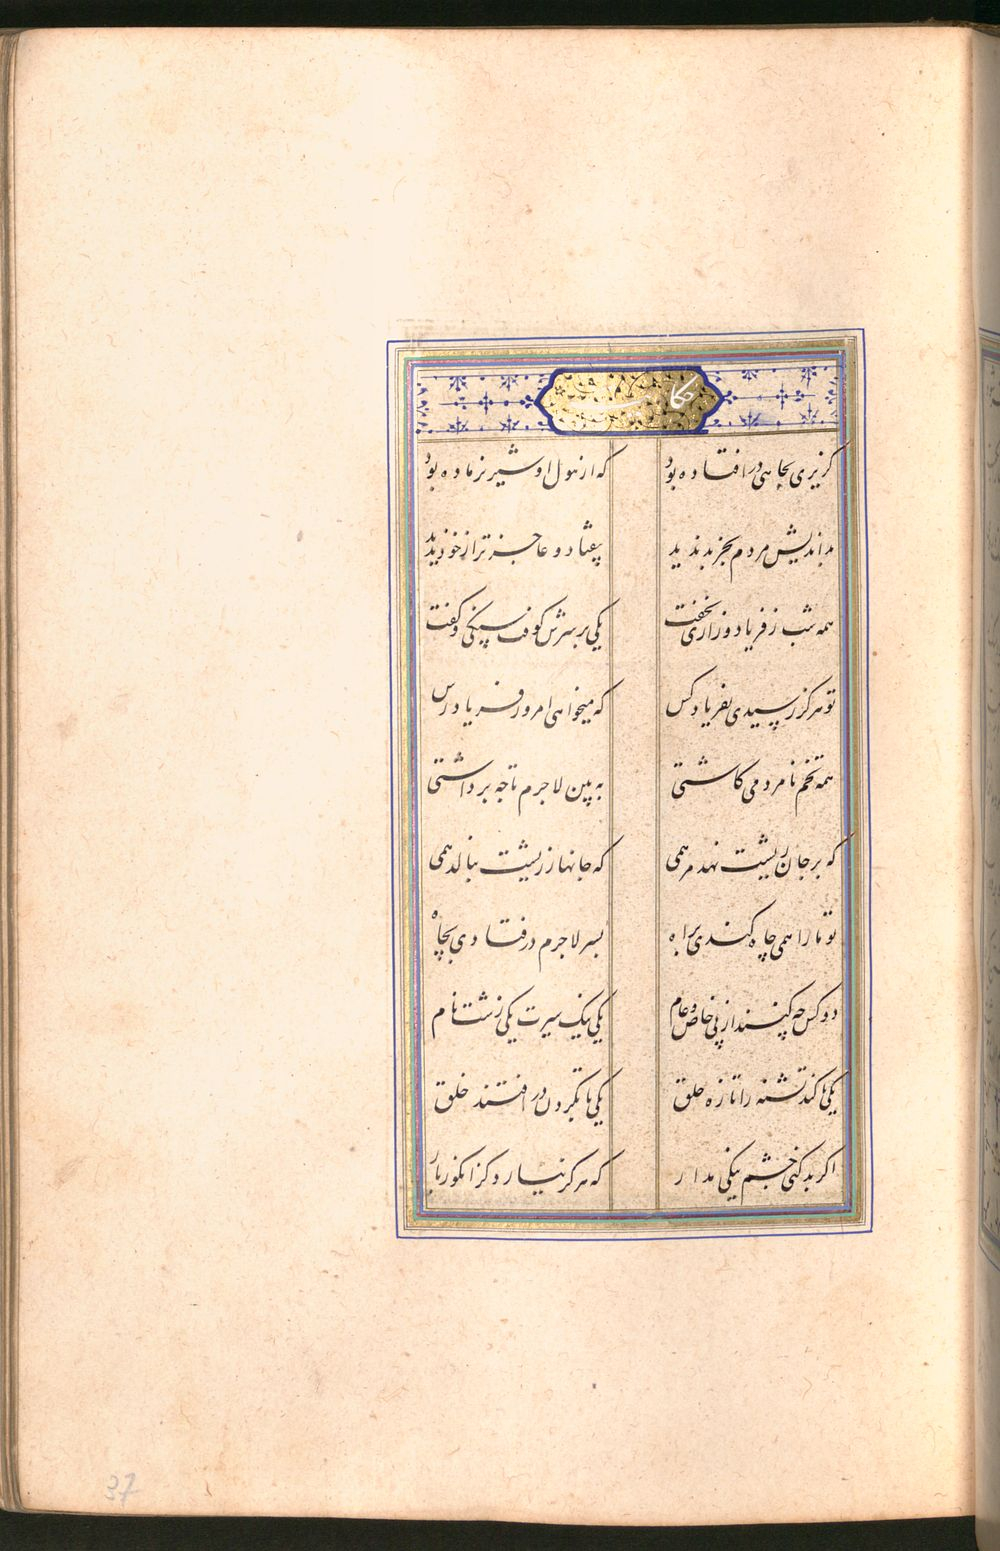 حکایت
گزیری بچاهی در افتاده بود
که از هول او شیر نر ماده بود
بداندیش مردم بجز بد ندید
بیفتاد و عاجزتر از خود ندید
همه شب ز فریاد و زاری نخفت
یکی بر سرش کوفت سنگی و گفت
تو هرگز رسیدی بفریاد کس
که میخواهی امروز فریادرس
همه تخم نامردمی کاشتی
به بین لاجرم تا چه برداشتی
که بر جان ریشت نهد مرهمی
که جانها ز ریشت بنالد همی
تو ما را همی چاه کندی براه
بسر لاجرم در فتادی بچاه
دو کس چه کنند از پی خاص و عام
یکی نیک سیرت یکی زشت نام
یکی تا کند تشنه را تازه حلق
یکی تا بگردن در افتند خلق
اگر بد کنی چشم نیکی مدار
که هرگز نیارد گز انگور بار
37